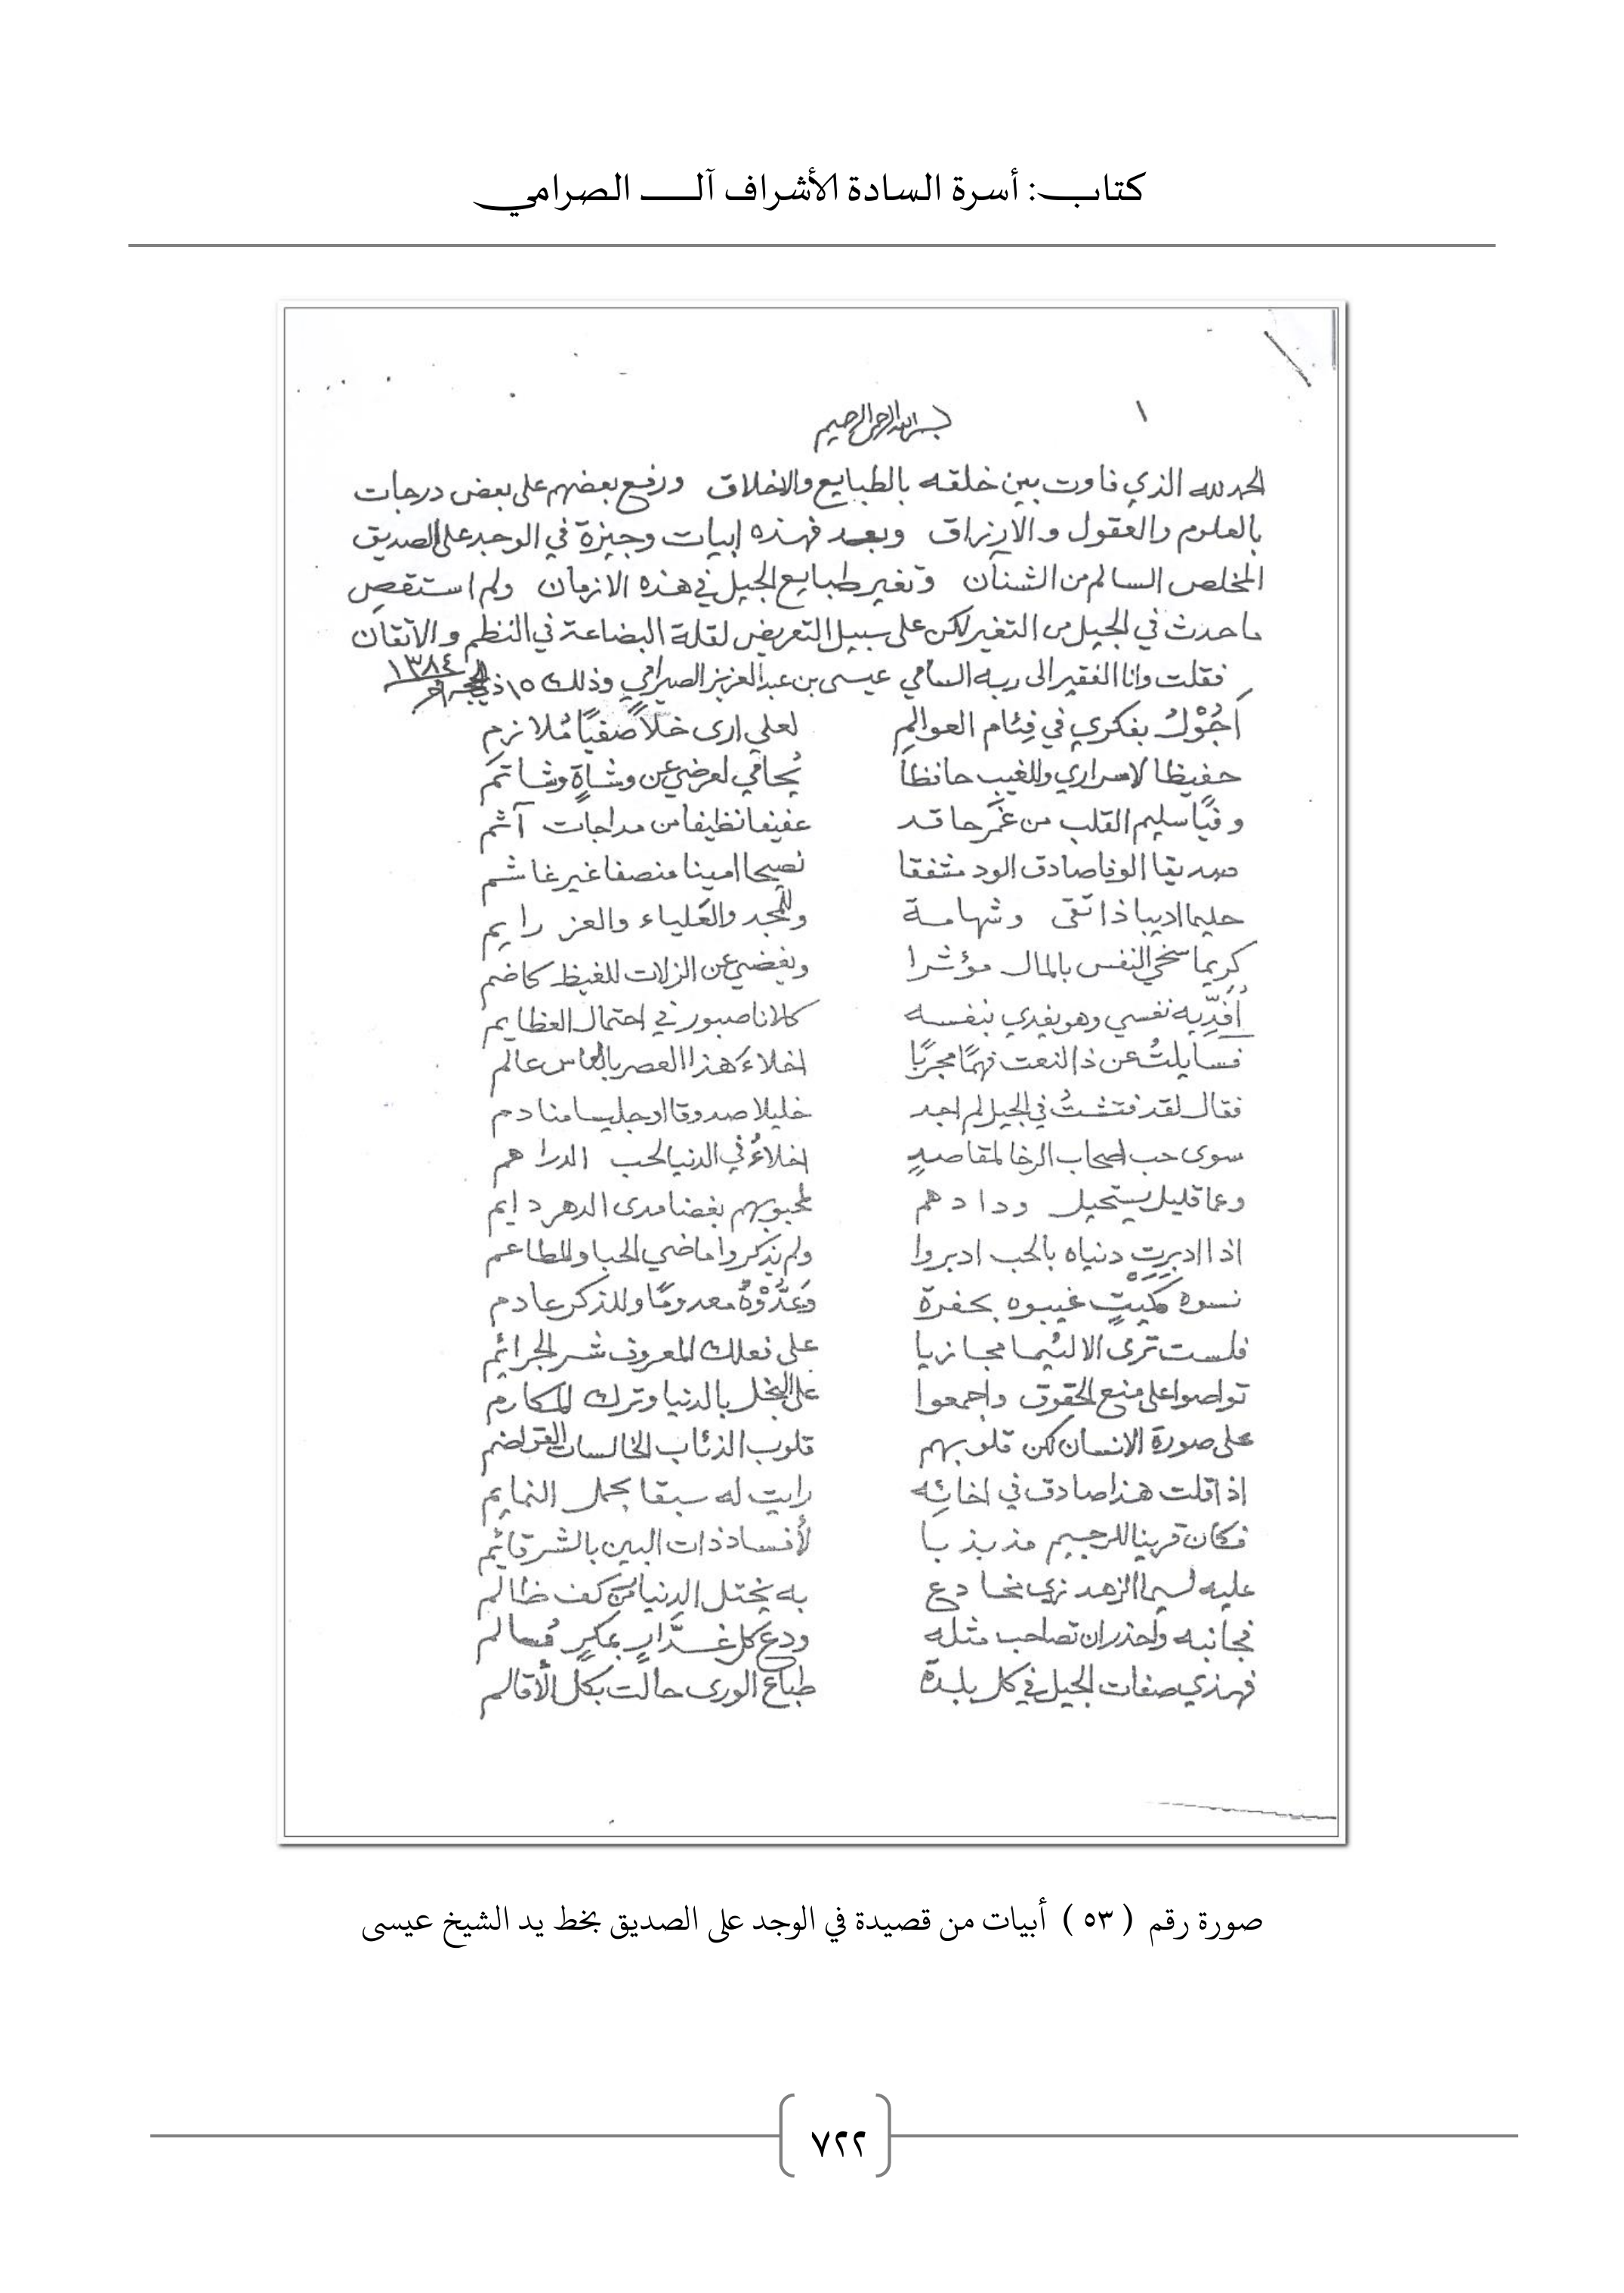 كتاب: أسرة السادة الأشراف آل الصرامي
١
بسم الله الرحمن الرحيم
الحمد لله الذي فاوت بين خلقه بالطبايع والاخلاق ورفع بعضهم على بعض درجات
بالعلوم والعقول والارزاق وبعد فهذه ابيات وجيزة في الوجد على الصديق
المخلص السالم من الشنآن وتغير طبايع الجيل في هذه الازمان ولم استقصِ
ما حدث في الجيل من التغير لكن على سبيل التعريض لقلة البضاعة في النظم والاتقان
فقلت وانا الفقير الى ربه السامي عيسى بن عبد العزيز الصرامي وذلك ١٥ ذي الحجة ١٣٨٤
أَجُوْلُ بفكري في فِئام العوالمِ لعلي ارى خلاًّ صفيًّا مُلازم
حفيظا لاسراري وللغيب حافظاً يُحامي لعرضي عن وشاةٍ وشاتم
وفيًّا سليم القلب من غمر حاقد عفيفا نظيفا من مداجات آثم
صديقا الوفا صادق الود مشفقا نصيحا امينا منصفا غير غاشم
حليما اديبا ذا تقى وشهامة وللمجد والعَلياء والعز رايم
كريما سخي النفس بالمال مؤثرا ويغضي عن الزلات للغيظ كاضم
أُفَدِّيه نفسي وهو يفدي بنفسه كلانا صبور في احتمال العظايم
فسايلتُ عن ذا النعت فهمًا مجربًا اخلاءَ هذا العصر بالناس عالم
فقال لقد فتشتُ في الجيل لم اجد خليلا صدوقا او جليسا منادم
سوى حب اصحاب الرخا لمقاصدٍ اخلاءُ في الدنيا لحب الدراهم
وعما قليل يستحيل ودادهم لمحبوبهم بغضا مدى الدهر دايم
اذا ادبرت دنياه بالحب ادبروا ولم يذكروا ماضي الحبا والمطاعم
نسوه كميتٍ غيبوه بحفرة وَعَدُّوْهُ معدومًا وللذكر عادم
فلست ترى الا لئيما مجازيا على فعلك المعروف شر الجرائم
تواصوا على منع الحقوق واجمعوا على البخل بالدنيا وترك المكارم
على صورة الانسان لكن قلوبهم قلوب الذئاب الخالسات القواضم
اذا قلت هذا صادق في اخائه رايت له سبقا بحمل النمايم
فكان قرينا للرجيم مذبذبا لأفساد ذات البين بالشر قائم
عليه لسيما الزهد زي مخادع به يختل الدنيا من كف ظالم
فجانبه واحذر ان تصاحب مثله ودع كل غدَّارٍ بمكرٍ مُسالم
فهذي صفات الجيل في كل بلدة طباع الورى حالت بكل الأقالم
صورة رقم ( ٥٣ ) أبيات من قصيدة في الوجد على الصديق بخط يد الشيخ عيسى
٧٢٢